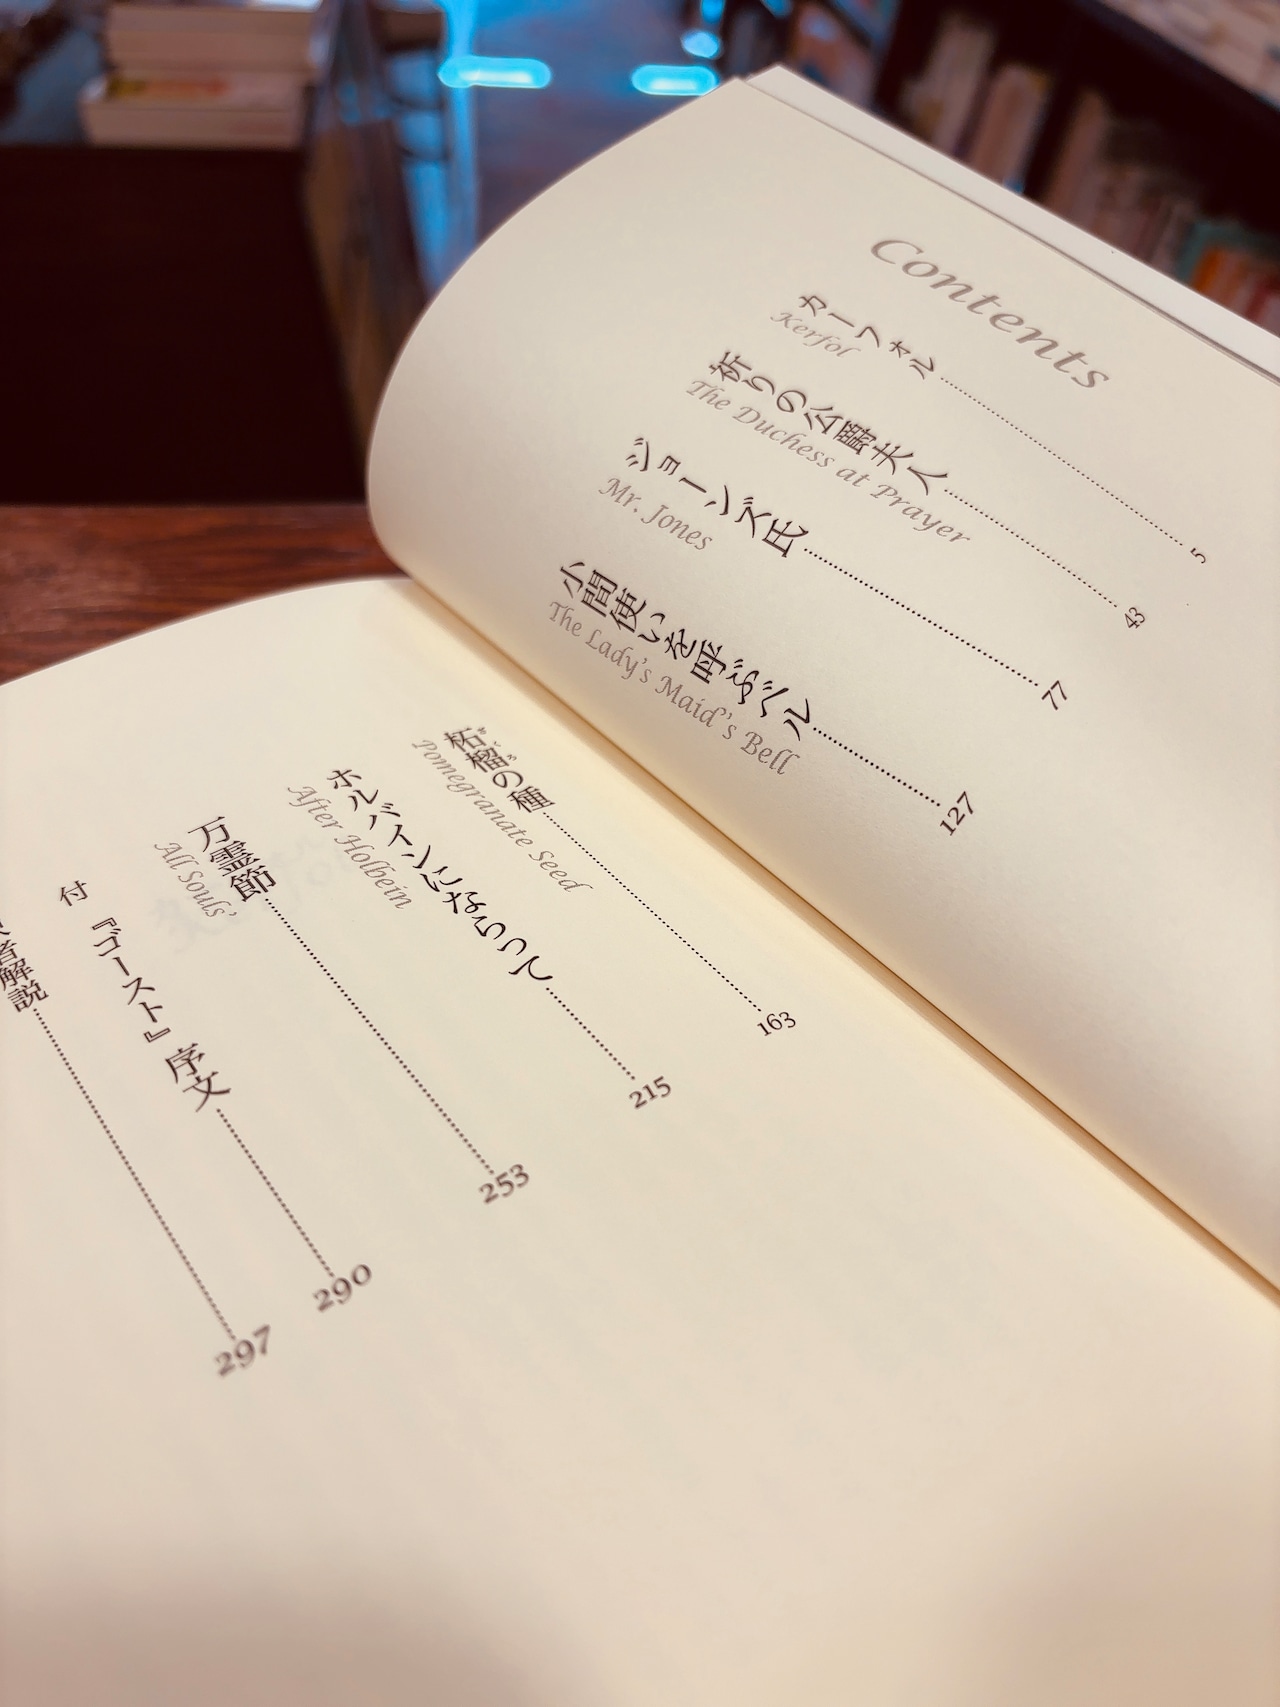 Contents
カーフォル……5
Kerfol
祈りの公爵夫人……43
The Duchess at Prayer
ジョーンズ氏……77
Mr. Jones
小間使いを呼ぶベル……127
The Lady's Maid's Bell
柘榴の種……163
ざくろ
Pomegranate Seed
ホルバインにならって……215
After Holbein
万霊節……253
All Souls'
付 『ゴースト』序文……290
者解説……297